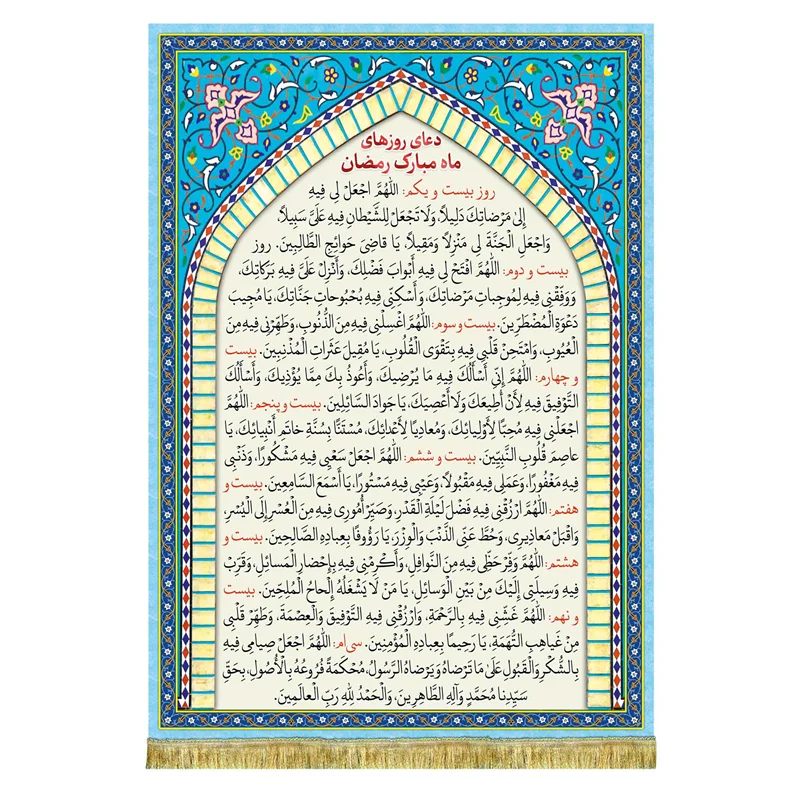 دعای روزهای
ماه مبارک رمضان
روز بیست و یکم: اَللّٰهُمَّ اجْعَلْ لی فیهِ
إِلىٰ مَرْضاتِكَ دَلیلاً، وَلَا تَجْعَلْ لِلشَّیْطانِ فیهِ عَلَیَّ سَبیلاً،
وَاجْعَلِ الْجَنَّةَ لی مَنْزِلاً وَمَقیلاً، یَا قاضِیَ حَوائِجِ الطَّالِبینَ. روز
بیست و دوم: اَللّٰهُمَّ افْتَحْ لی فیهِ أَبْوابَ فَضْلِكَ، وَأَنْزِلْ عَلَیَّ فیهِ بَرَكاتِكَ،
وَوَفِّقْنی فیهِ لِمُوجِباتِ مَرْضاتِكَ، وَأَسْكِنّی فیهِ بُحْبُوحاتِ جَنَّاتِكَ، یَا مُجیبَ
دَعْوَةِ الْمُضْطَرّینَ. بیست و سوم: اَللّٰهُمَّ اغْسِلْنی فیهِ مِنَ الذُّنُوبِ، وَطَهِّرْنی فیهِ مِنَ
الْعُیُوبِ، وَامْتَحِنْ قَلْبی فیهِ بِتَقْوَی الْقُلُوبِ، یَا مُقیلَ عَثَراتِ الْمُذْنِبینَ. بیست
و چهارم: اَللّٰهُمَّ إِنّی أَسْأَلُكَ فیهِ مَا یُرْضیكَ، وَأَعُوذُ بِكَ مِمَّا یُؤْذیكَ، وَأَسْأَلُكَ
التَّوْفیقَ فیهِ لِأَنْ أُطیعَكَ وَلَا أَعْصِیَكَ، یَا جَوادَ السَّائِلینَ. بیست و پنجم: اَللّٰهُمَّ
اجْعَلْنی فیهِ مُحِبّاً لِأَوْلِیائِكَ، وَمُعادِیاً لِأَعْدائِكَ، مُسْتَنّاً بِسُنَّةِ خاتَمِ أَنْبِیائِكَ، یَا
عاصِمَ قُلُوبِ النَّبِیّینَ. بیست و ششم: اَللّٰهُمَّ اجْعَلْ سَعْیی فیهِ مَشْكُورًا، وَذَنْبی
فیهِ مَغْفُورًا، وَعَمَلی فیهِ مَقْبُولاً، وَعَیْبی فیهِ مَسْتُورًا، یَا أَسْمَعَ السَّامِعینَ. بیست و
هفتم: اَللّٰهُمَّ ارْزُقْنی فیهِ فَضْلَ لَیْلَةِ الْقَدْرِ، وَصَیِّرْ أُمُوری فیهِ مِنَ الْعُسْرِ إِلَی الْیُسْرِ،
وَاقْبَلْ مَعاذیری، وَحُطَّ عَنِّی الذَّنْبَ وَالْوِزْرَ، یَا رَؤُوفًا بِعِبادِهِ الصَّالِحینَ. بیست و
هشتم: اَللّٰهُمَّ وَفِّرْ حَظّی فیهِ مِنَ النَّوافِلِ، وَأَكْرِمْنی فیهِ بِإِحْضارِ الْمَسائِلِ، وَقَرِّبْ
فیهِ وَسیلَتی إِلَیْكَ مِنْ بَیْنِ الْوَسائِلِ، یَا مَنْ لَا یَشْغَلُهُ إِلْحاحُ الْمُلِحّینَ. بیست
و نهم: اَللّٰهُمَّ غَشِّنی فیهِ بِالرَّحْمَةِ، وَارْزُقْنی فیهِ التَّوْفیقَ وَالْعِصْمَةَ، وَطَهِّرْ قَلْبی
مِنْ غَیاهِبِ التُّهَمَةِ، یَا رَحیمًا بِعِبادِهِ الْمُؤْمِنینَ. سی‌ام: اَللّٰهُمَّ اجْعَلْ صِیامی فیهِ
بِالشُّكْرِ وَالْقَبُولِ عَلَىٰ مَا تَرْضاهُ وَیَرْضاهُ الرَّسُولُ، مُحْكَمَةً فُرُوعُهُ بِالْأُصُولِ، بِحَقِّ
سَیِّدِنا مُحَمَّدٍ وَآلِهِ الطَّاهِرینَ، وَالْحَمْدُ لِلّٰهِ رَبِّ الْعالَمینَ.